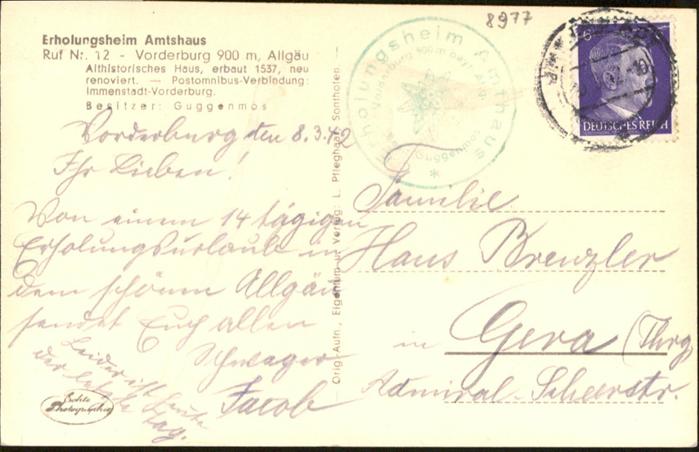 8977
Erholungsheim Amtshaus
Ruf Nr. 12 - Vorderburg 900 m, Allgäu
Althistorisches Haus, erbaut 1537, neu
renoviert. — Postomnibus-Verbindung:
Immenstadt-Vorderburg.
Besitzer: Guggenmos
Vorderburg den 8.3.42
Ihr Lieben!
Von einem 14 tägigen
Erholungsurlaub in
dem schönen Allgäu
sendet Euch allen
Schwager
Jacob
Leider ist heute
der letzte
Tag.
Echte
Photographie
Orig.-Aufn., Eigentum u. Verlag: L. Pfleghaar, Sonthofen
Erholungsheim Amtshaus
Vorderburg 900 m
DEUTSCHES REICH
Familie
Hans Brenzler
in Gera (Thrg
Admiral-Scheerstr.